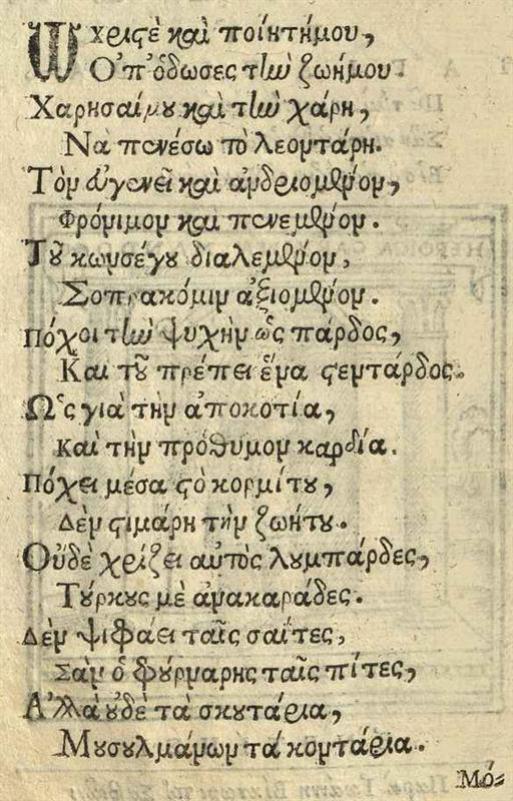 Ὦ χριστὲ καὶ ποίητήμου,
Ὁπ' ὅδωσες τὴν ζωήμου.
Χαρησαίμου καὶ τὴν χάρη,
Νὰ πενέσω τὸ λεοντάρη.
Τὸν εὐγενεῖ καὶ ἀνδριομένον,
Φρόνιμον καὶ πενεμένον.
Τοῦ κωνσέγου διαλεμένον,
Σοπρακόμιν ἀξιομένον.
Πόχοι τὴν ψυχὴν ὡς πάρδος,
Καὶ τοῦ πρέπει ἕνα στεντάρδος.
Ὡς γιὰ τὴν ἀποκοτία,
Καὶ τὴν πρόθυμον καρδία.
Πόχει μέσα στὸ κορμίτου,
Δὲν στιμάρη τὴν ζωήτου.
Οὔδὲ χρίζει αὐτὸς λουμπάρδες,
Τούρκους μὲ ἀνακαράδες.
Δὲν ψιφάει ταῖς σαΐτες,
Σὰν ὁ φούρμαρης ταῖς πίτες,
Ἀλλὰ οὐδε τὰ σκουτάρια,
Μουσουλμάνων τά κοντάρια.
Μό-